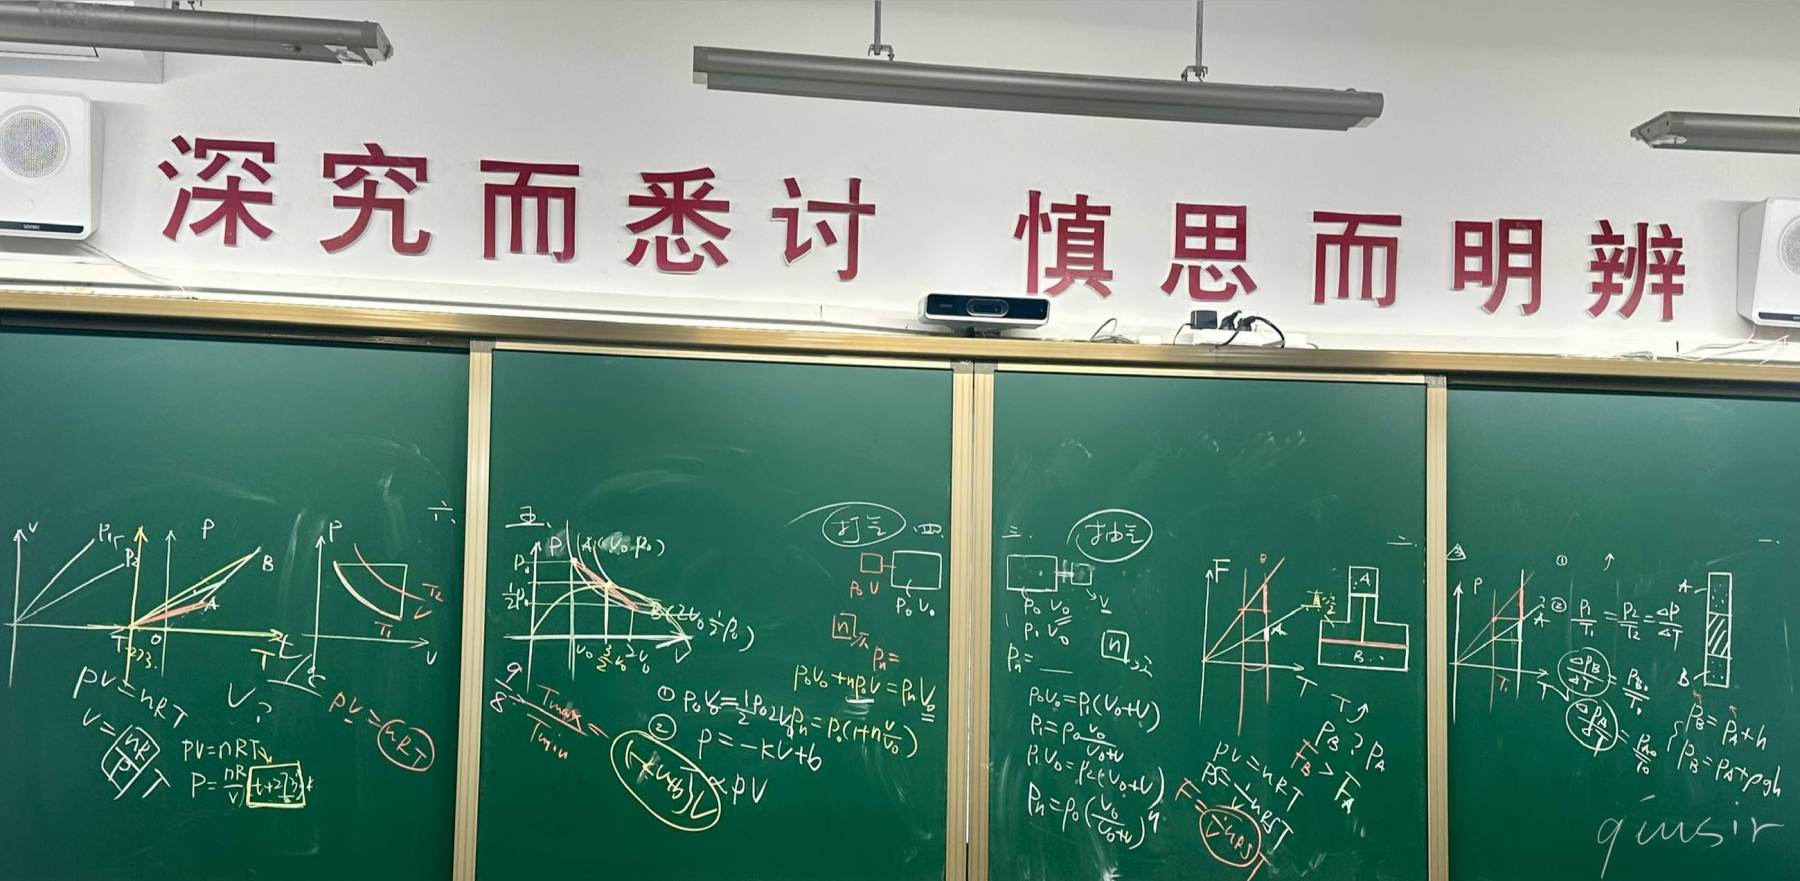 深究而悉讨 慎思而明辨
六.
V
P₁
P₂
P
B
A
T
-273.
O
T
t
P
T₂
T₁
V
PV=nRT
V=(nR/P)T
V?
PV=nRT
P=nR/V(t+273)
PV=nRT
五.
P
A(V₀ P₀)
P₀
½P₀
B(2V₀ ½P₀)
V₀
3/2V₀
2V₀
V
9/8→Tmax/Tmin=
① P₀V₀=½P₀2V₀
② P=-kV+b
(-kV+b)V∝PV
打气
四.
P₀ V
P₀ V₀
n次
Pn=
P₀V₀+nP₀V=PnV₀
Pn=P₀(1+nV/V₀)
三.
抽气
P₀ V₀
V
P₁ V₀
n次
Pn=
P₀V₀=P₁(V₀+V)
P₁=P₀V₀/(V₀+V)
P₁V₀=P₂(V₀+V)
Pn=P₀(V₀/(V₀+V))ⁿ
二.
F
B
A
T
A
B
T↑
P_B?P_A
F_B>F_A
PV=nRT
PS=1/V nRST
一.
P
A
T₁
T
①
↑
② P₁/T₁=P₂/T₂=ΔP/ΔT
ΔP_B/ΔT=P_B₀/T₀
ΔP_A/ΔT=P_A₀/T₀
A
B
P_B=P_A+h
P_B=P_A+ρgh
qinsir